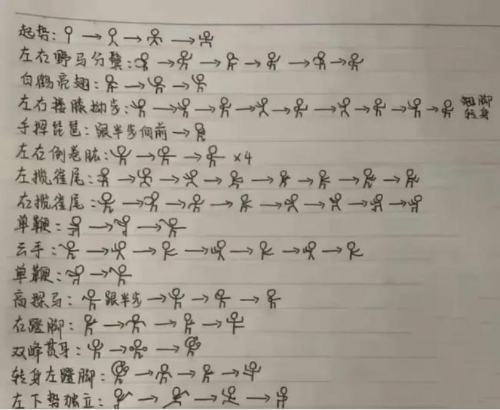 起势:
左右野马分鬃:
白鹤亮翅:
左右搂膝拗步: 翘脚转身
手挥琵琶: 跟半步向前
左右倒卷肱: ×4
左揽雀尾:
右揽雀尾:
单鞭:
云手:
单鞭:
高探马: 跟半步
右蹬脚:
双峰贯耳:
转身左蹬脚:
左下势独立: